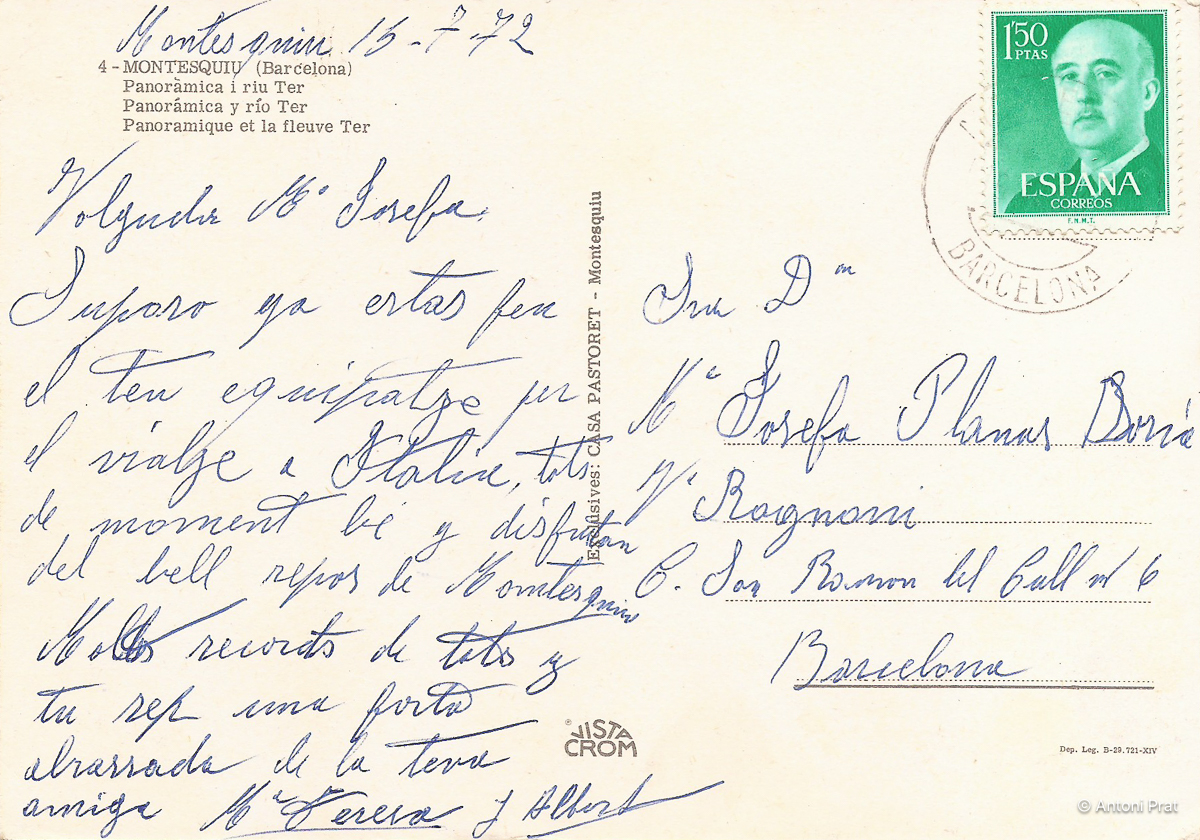 Montesquiu 15-7-72
4 - MONTESQUIU (Barcelona)
Panoràmica i riu Ter
Panorámica y río Ter
Panoramique et la fleuve Ter
Volguda Mª Josefa.
Suposo ya estas fen
el teu equipatge per
el viatge a Italia, tots
de moment bé y disfrutan
del bell repos de Montesquiu
Molts records de tots y
tu rep una forta
abrassada de la teva
amiga Mª Teresa y Albert
Exclusives: CASA PASTORET - Montesquiu
VISTA
CROM
1'50
PTAS
ESPAÑA
CORREOS
F.N.M.T.
BARCELONA
Sra Dña
Mª Josefa Planas Boria
Vª Rognoni
C. San Ramon del Call nº 6
Barcelona
Dep. Leg. B-29.721-XIV
© Antoni Prat